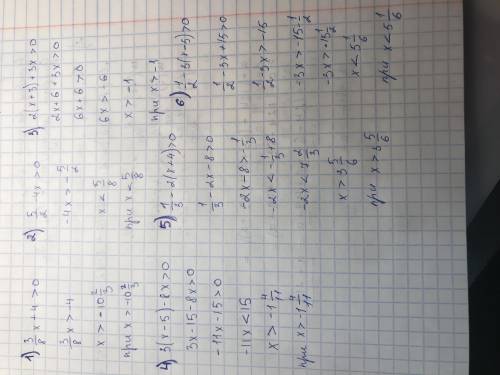 1) 3/8 x + 4 > 0
3/8 x > 4
x > -10 2/3
при x > -10 2/3
2) 5/2 - 4x > 0
-4x > -5/2
x < 5/8
при x < 5/8
3) 2(x+3)+3x > 0
2x+6+3x > 0
6x+6 > 0
6x > -6
x > -1
при x > -1
4) 3(x-5)-8x > 0
3x-15-8x > 0
-11x-15 > 0
-11x < 15
x > -1 4/11
при x > -1 4/11
5) 1/3 - 2(x+4) > 0
1/3 - 2x - 8 > 0
-2x-8 > -1/3
-2x < -1/3 + 8
-2x < 7 2/3
x > 3 5/6
при x > 3 5/6
6) 1/2 - 3(x-5) > 0
1/2 - 3x + 15 > 0
1/2 - 3x > -15
-3x > -15 - 1/2
-3x > -15 1/2
x < 5 1/6
при x < 5 1/6